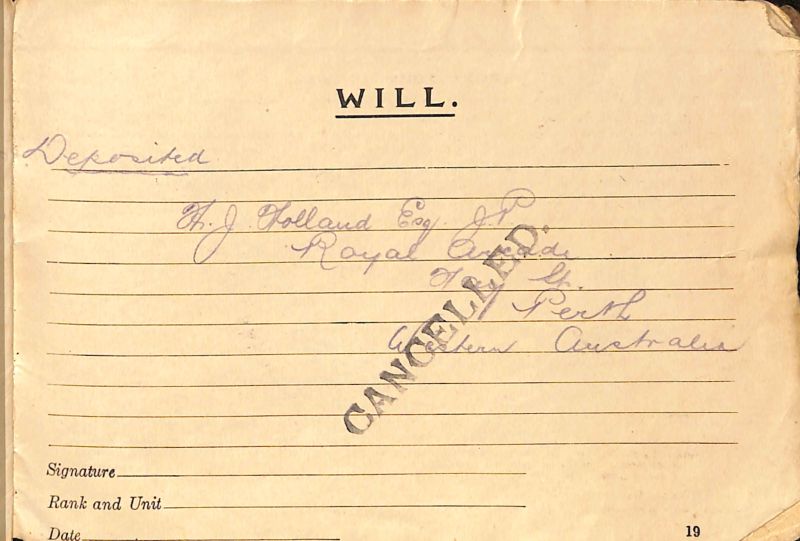 WILL.
Deposited
H. J. Holland Esq. J.P.
Royal Arcade
Hay St.
Perth
Western Australia
CANCELLED.
Signature
Rank and Unit
Date 19